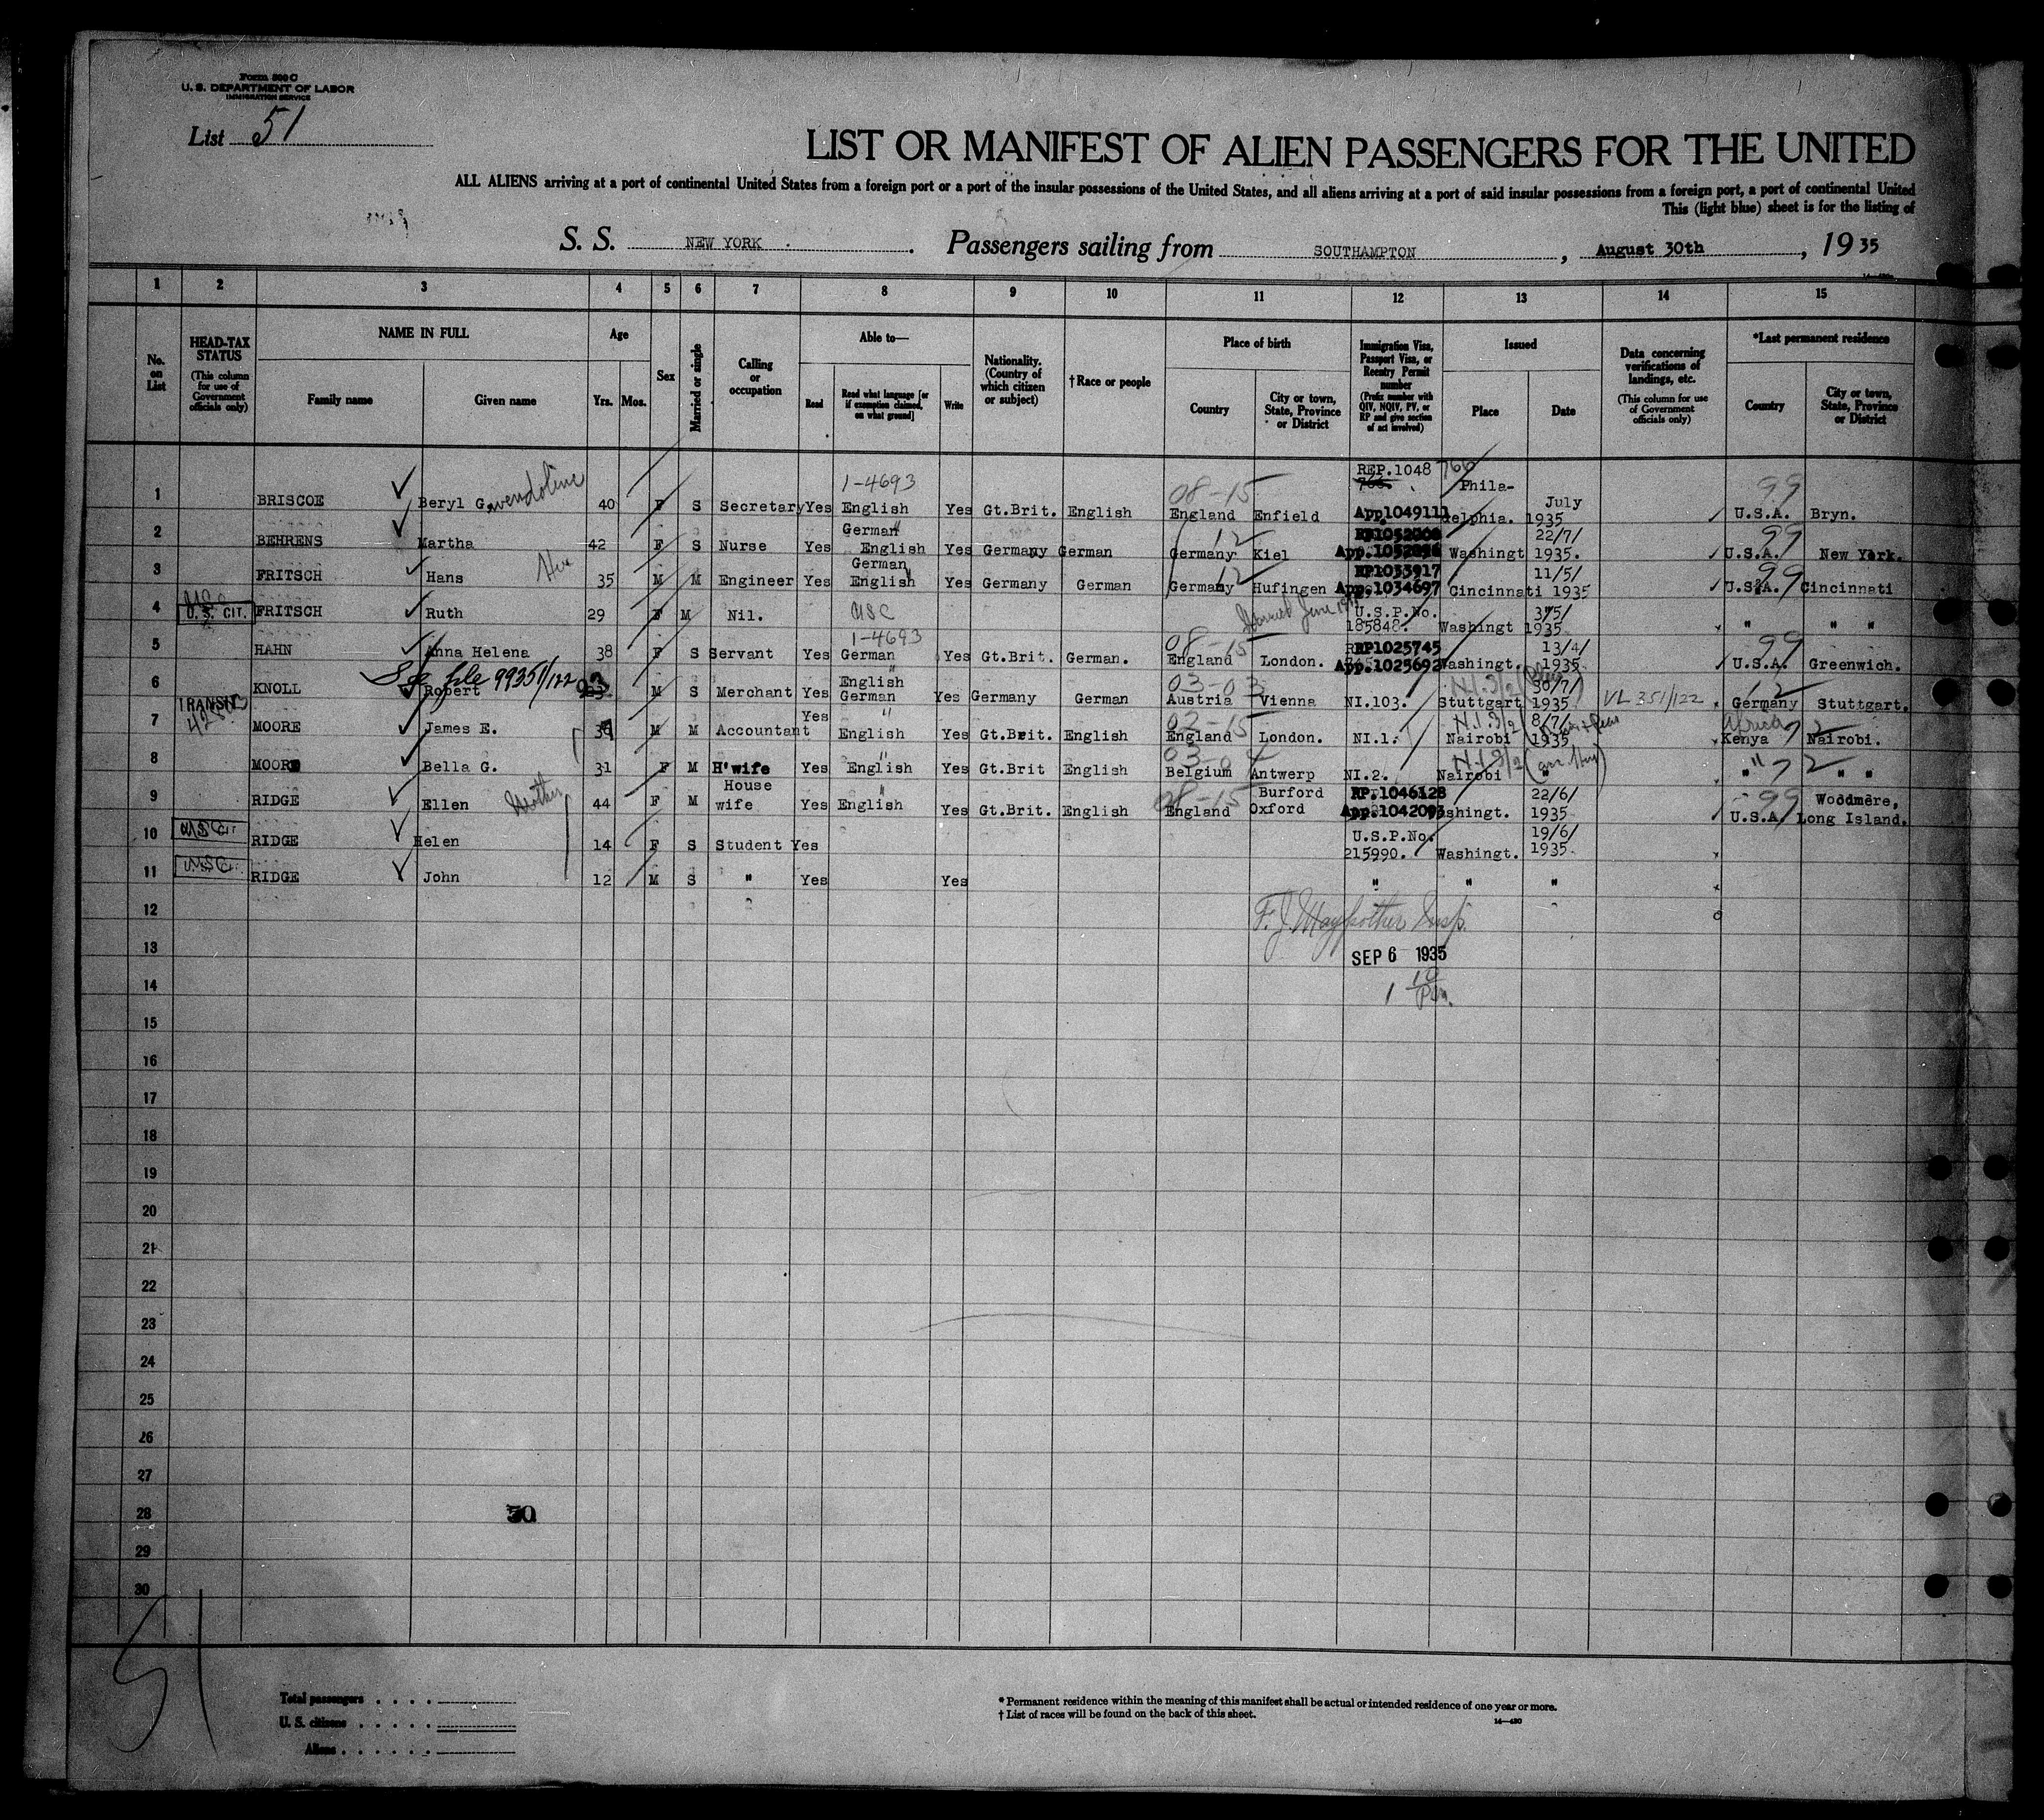 Form 500 C
U. S. DEPARTMENT OF LABOR
IMMIGRATION SERVICE
List 51
LIST OR MANIFEST OF ALIEN PASSENGERS FOR THE UNITED
ALL ALIENS arriving at a port of continental United States from a foreign port or a port of the insular possessions of the United States, and all aliens arriving at a port of said insular possessions from a foreign port, a port of continental United
This (light blue) sheet is for the listing of
S. S. NEW YORK. Passengers sailing from SOUTHAMPTON, August 30th, 1935
1 2 3 4 5 6 7 8 9 10 11 12 13 14 15
No. on List
HEAD-TAX STATUS (This column for use of Government officials only)
NAME IN FULL
Family name Given name
Age
Yrs. Mos.
Sex
Married or single
Calling or occupation
Able to—
Read
Read what language [or if exemption claimed, on what ground]
Write
Nationality. (Country of which citizen or subject)
†Race or people
Place of birth
Country
City or town, State, Province or District
Immigration Visa, Passport Visa, or Reentry Permit number (Prefix number with QIV, NQIV, PV, or RP and give section of act involved)
Issued
Place Date
Data concerning verifications of landings, etc. (This column for use of Government officials only)
*Last permanent residence
Country
City or town, State, Province or District
1 BRISCOE Beryl Gwendoline 40 F S Secretary Yes 1-4693 English Yes Gt.Brit. English 08-15 England Enfield REP.1048 766 App1049111 Phila-delphia. July 1935 99 U.S.A. Bryn.
2 BEHRENS Martha 42 F S Nurse Yes German English Yes Germany German 12 Germany Kiel Washingt 22/7/ 1935. 99 U.S.A. New York.
3 FRITSCH Hans 35 M M Engineer Yes German English Yes Germany German 12 Germany Hufingen RP1033917 App.1034697 Cincinnati 11/5/ 1935 99 U.S.A. Cincinnati
4 USC U. S. CIT. FRITSCH Ruth 29 F M Nil. USC Married June U.S.P.No. 185848. Washingt 3/5/ 1935 " " "
5 HAHN Anna Helena 38 F S Servant Yes 1-4693 German Yes Gt.Brit. German. 08-15 England London. RP1025745 App.1025692 Washingt. 13/4/ 1935 99 U.S.A. Greenwich.
See file 99351/122
6 TRANSIT KNOLL Robert 23 M S Merchant Yes English German Yes Germany German 03-03 Austria Vienna NI.103. N.I. 3/2 Stuttgart 30/7/ 1935 VL 351/122 12 Germany Stuttgart.
7 MOORE James E. M M Accountant Yes " English Yes Gt.Brit. English England London. NI.1. N.I. 3/2 Nairobi 8/7/ 1935 Africa 72 Kenya Nairobi.
8 MOORE Bella G. 31 F M H'wife Yes " English Yes Gt.Brit English Belgium Antwerp NI.2. N.I. 3/2 Nairobi " " 72 " "
9 RIDGE Ellen Mother 44 F M House wife Yes " English Yes Gt.Brit. English 08-15 England Burford Oxford RP.1046128 App.1042093 Washingt. 22/6/ 1935 99 U.S.A. Woodmere, Long Island.
10 RIDGE Helen 14 F S Student Yes U.S.P.No. 215990. Washingt. 19/6/ 1935.
11 RIDGE John 12 M S " Yes Yes " " "
12
F. J. Maypother Insp.
13
SEP 6 1935
14
15
16
17
18
19
20
21
22
23
24
25
26
27
28
29
30
51
Total passengers
U. S. citizens
Aliens
* Permanent residence within the meaning of this manifest shall be actual or intended residence of one year or more.
† List of races will be found on the back of this sheet.
14—430